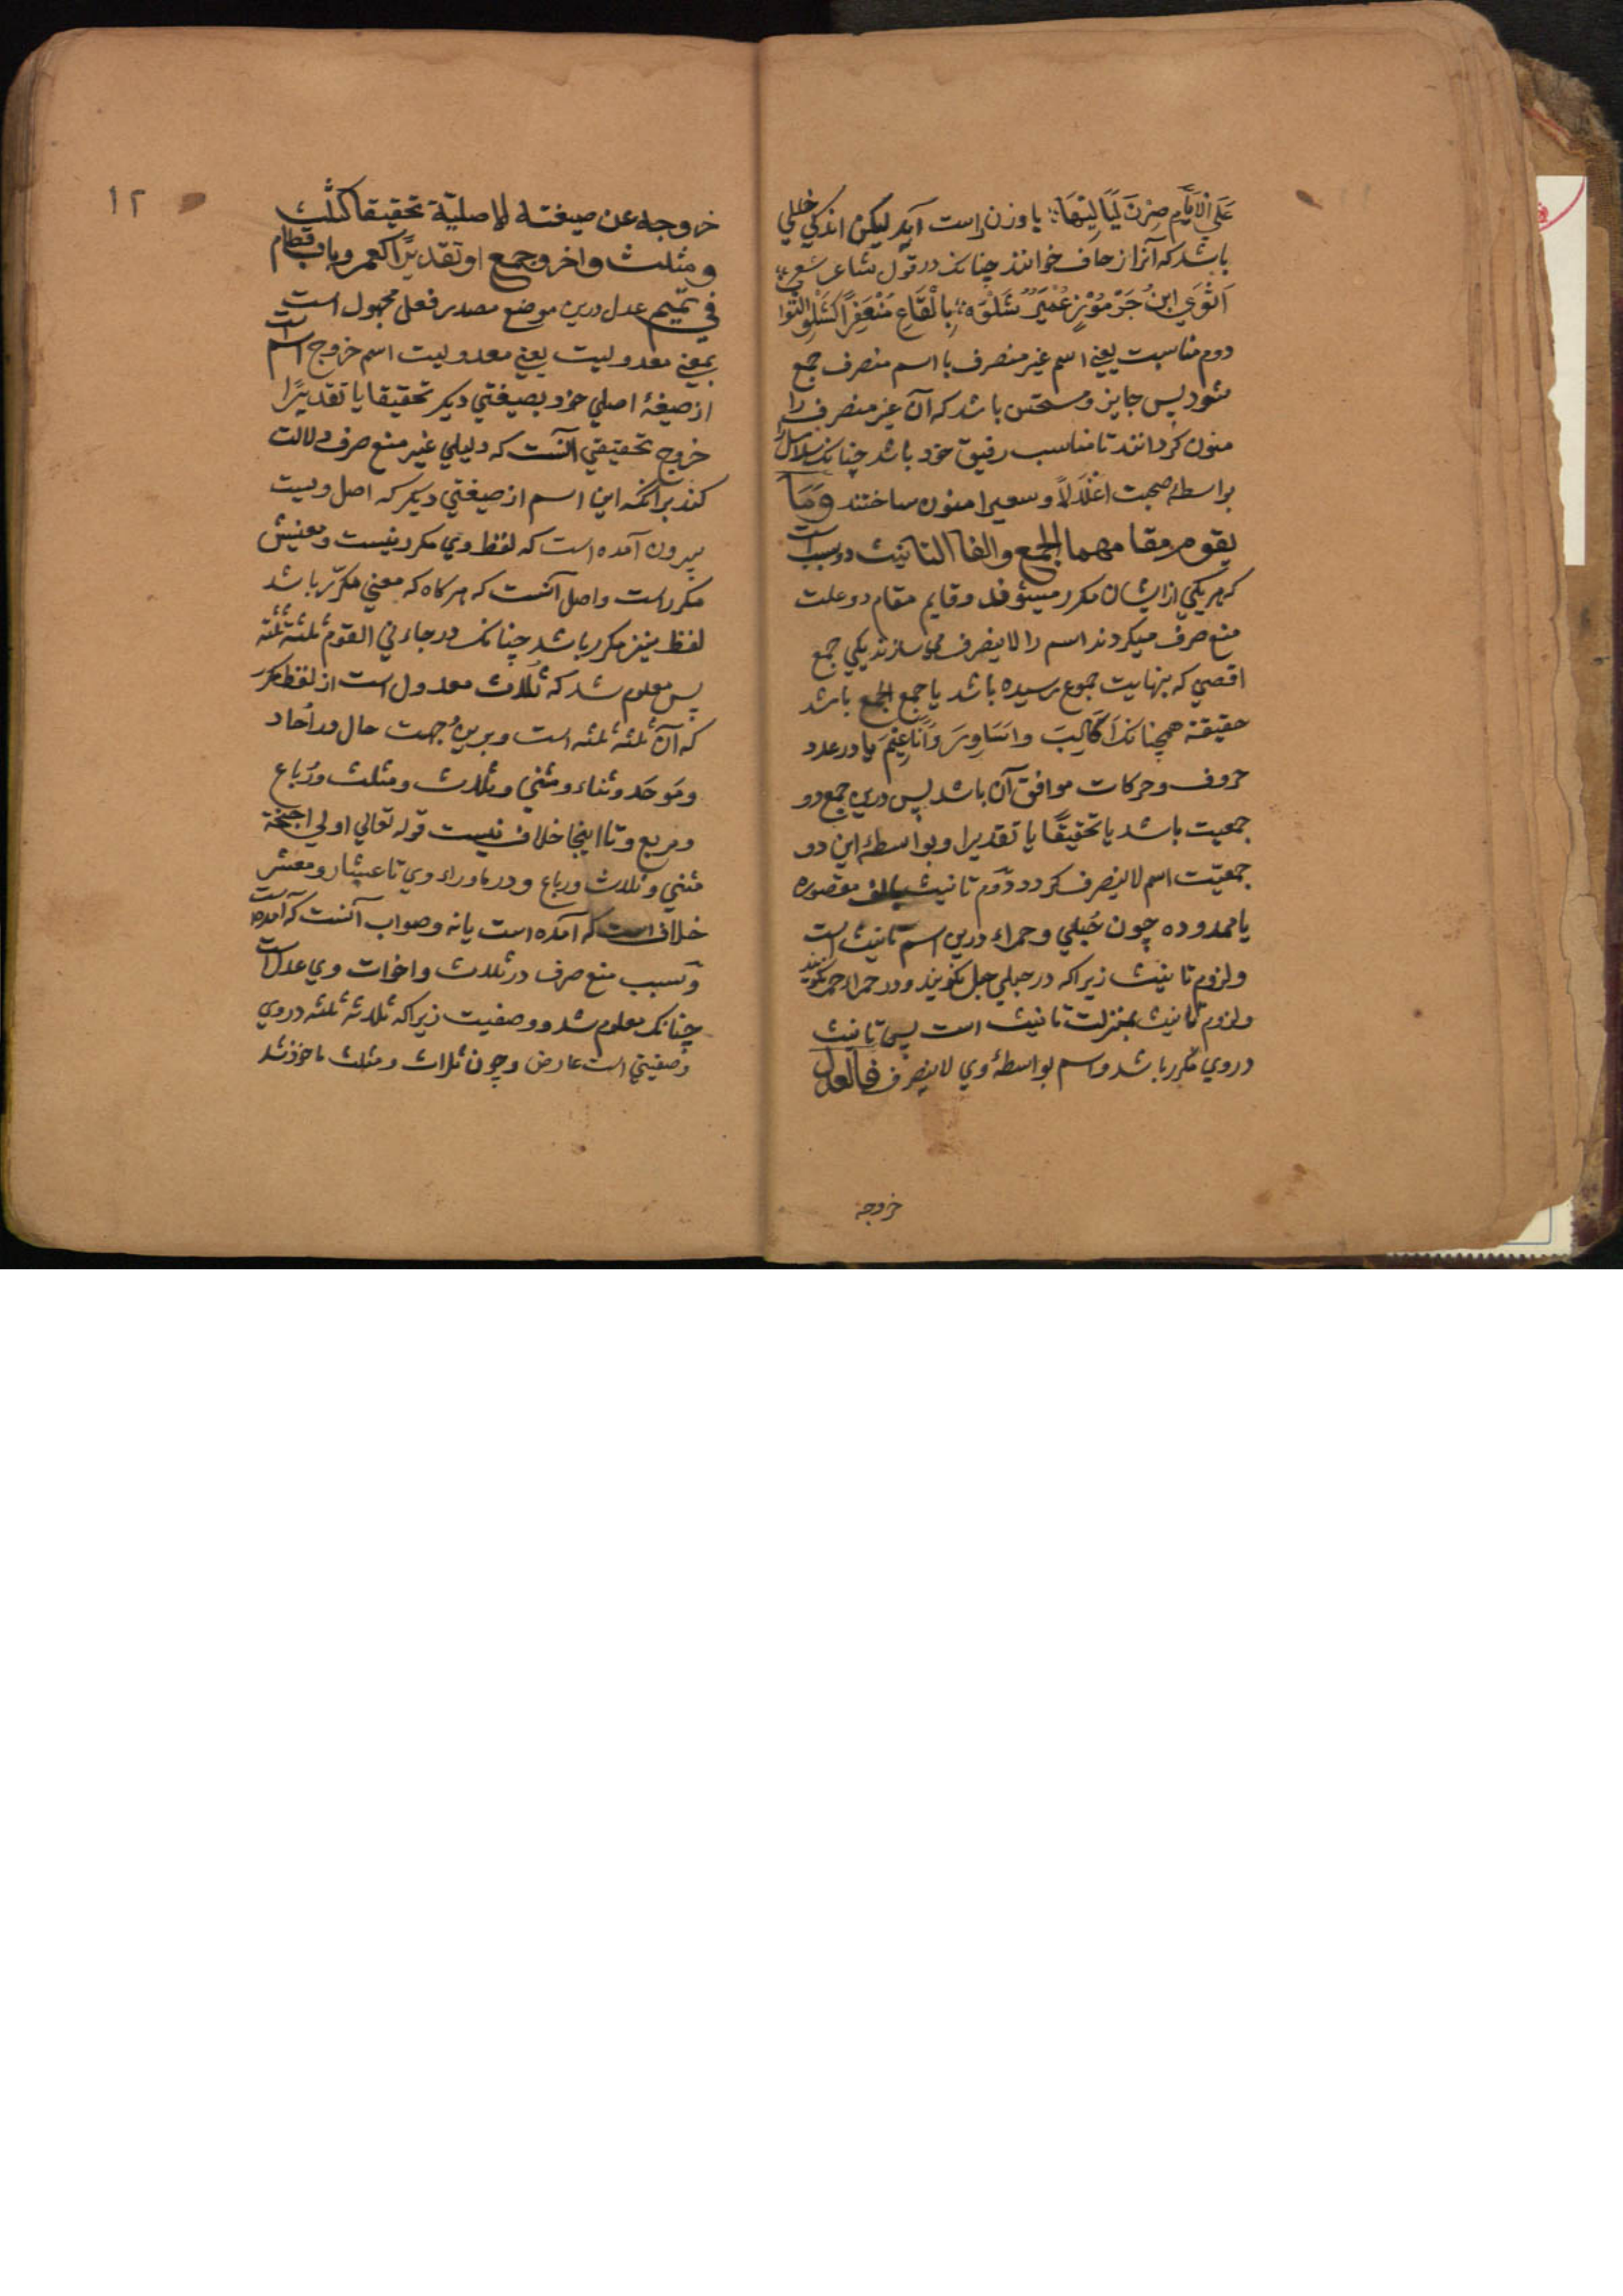 عَلَي الْاَيَّامِ صِرْنَ لَيَالِيْهَا؛ يا وزن راست آيد ليكن اندكي خللي
باشد كه آنرا زحاف خوانند چنانك در قول شاعر شعر
دوم مناسبت يعني اسم غير منصرف با اسم منصرف جمع
شود پس جايز و مستحسن باشد كه آن غير منصرف را
منون كردانند تا مناسب رفيق خود باشد چنانك سلاسلا
بواسطۀ صحبت اغْلَالاً و سعيرا منون ساختند وَمَا
يقوم مقامهما الجمع والفا التانيث دو سبب است
كه هر يكي از ايشان مكرر ميشود و قايم مقام دو علت
منع صرف ميكردند اسم را لا ينصرف مي سازند يكي جمع
اقصي كه بنهايت جموع رسيده باشد يا جمع الجمع باشد
حقيقة همچنانك اَكَالِبَ واَسَاوِرَ وَاَنَاعِيْمَ يا در عدد
حروف و حركات موافق آن باشد پس درين جمع دو
جمعيت باشد يا تحقيقًا يا تقديرا و بواسطۀ اين دو
جمعيّت اسم لا ينصرف كردد دوّم تانيث بالف مقصوره
يا ممدوده چون حُبلي و حمراء درين اسم تانيث است
و لزوم تانيث زيراكه در حبلي حبل نكويند و در حمراء حمر نكويند
و لزوم تانيث بمنزلت تانيث است پس تانيث
در وي مكرر باشد و اسم بواسطۀ وي لا ينصرف فالعدل
خروجه
١٢
خروجه عن صيغته الاصليّة تحقيقا كثلث
و مثلث واخر وجمع او تقديرًا كعمر وباب قطام
في تميم عدل درين موضع مصدر فعل مجهول است
بمعني معدوليت يعني معدوليت اسم خروج اسم است
از صيغۀ اصلي خود بصيغتي ديكر تحقيقا يا تقديرًا
خروج تحقيقي آنست كه دليلي غير منع صرف دلالت
كند برآنكه اين اسم از صيغتي ديكر كه اصل ويست
بيرون آمده است كه لفظ وي مكرر نيست و معنيش
مكرر است و اصل آنست كه هركاه كه معني مكرّر باشد
لفظ نيز مكرر باشد چنانك در جاءني القوم ثلثة ثلثة
پس معلوم شد كه ثُلاث معدول است از لفظ مكرر
كه آن ثلثه ثلثه است و برين جهت حال در اُحاد
و مَوحَد و ثناء و مثني و ثلاث و مثلث و رُباع
و مربع و تا اينجا خلاف نيست قوله تعالي اولي اجنحة
مثني و ثلاث و رباع و در ماوراء وي تا عشار و معشر
خلاف است كه آمده است يا نه و صواب آنست كه آمده است
و سبب منع صرف در ثلاث و اخوات وي عدل است
چنانك معلوم شد و وصفيت زيراكه ثلاثة ثلثه در وي
وصفيتي است عارض و چون ثلاث و مثلث ماخوذ شد